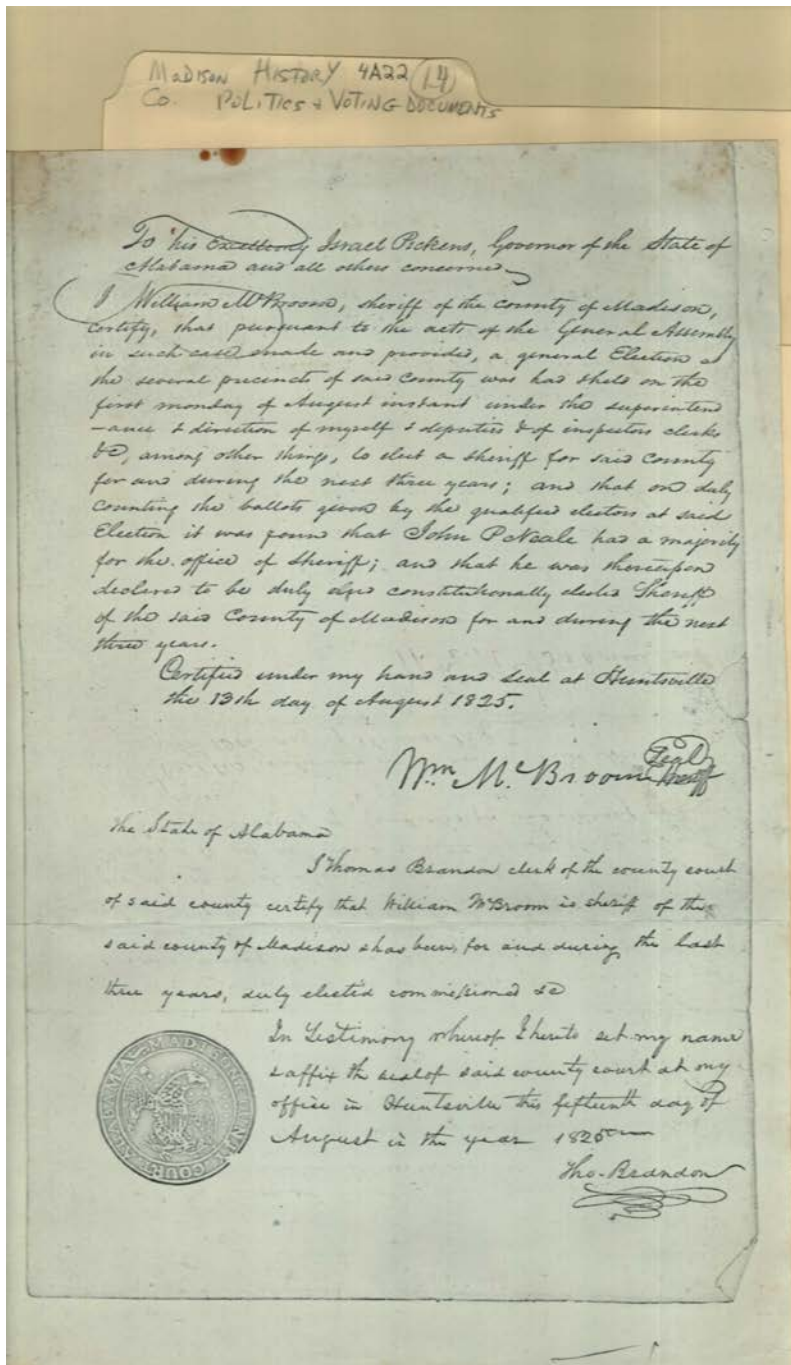 MADISON HISTORY 4A22 14
CO. POLITICS + VOTING DOCUMENTS
To his Excellency Israel Pickens, Governor of the State of
Alabama and all others concerned
I William McBroom, sheriff of the county of Madison,
certify, that pursuant to the acts of the General Assembly
in such case made and provided, a general Election at
the several precincts of said County was had & held on the
first monday of August instant under the superintend
-ance & direction of myself & deputies & of inspectors clerks
&c, among other things, to elect a sheriff for said County
for and during the next three years; and that on duly
counting the ballots given by the qualified electors at said
Election it was found that John P Neale had a majority
for the office of Sheriff; and that he was thereupon
declared to be duly and constitutionally elected Sheriff
of the said County of Madison for and during the next
three years.
Certified under my hand and seal at Huntsville
the 13th day of August 1825.
Wm. McBroom Seal
Sheriff
The State of Alabama
I Thomas Brandon clerk of the county court
of said county certify that William McBroom is sheriff of the
said county of Madison & has been, for and during the last
three years, duly elected commissioned &c
In Testimony whereof I hereto set my name
& affix the seal of said county court at my
office in Huntsville this fifteenth day of
August in the year 1825
Tho. Brandon
MADISON COUNTY COURT ALABAMA